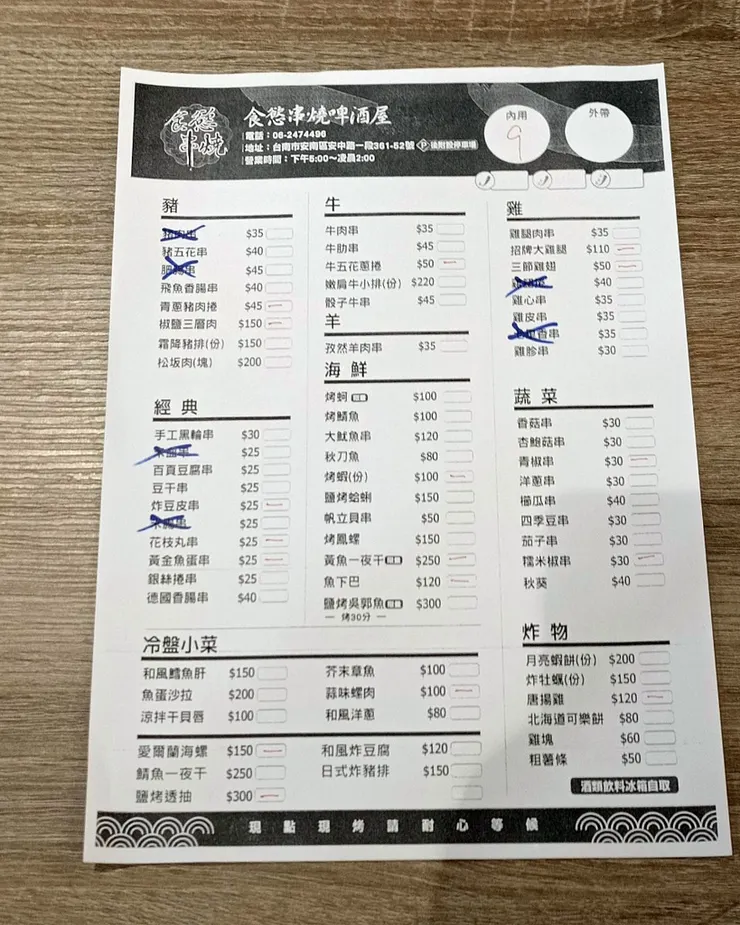 食慾串燒
食慾串燒啤酒屋
電話：06-2474496
地址：台南市安南區安中路一段361-52號 P 後附設停車場
營業時間：下午5:00～凌晨2:00
內用
9
外帶
豬
$35
豬五花串 $40
$45
飛魚香腸串 $40
青蔥豬肉捲 $45
椒鹽三層肉 $150
霜降豬排(份) $150
松坂肉(塊) $200
牛
牛肉串 $35
牛肋串 $45
牛五花蔥捲 $50
嫩肩牛小排(份) $220
骰子牛串 $45
羊
孜然羊肉串 $35
雞
雞腿肉串 $35
招牌大雞腿 $110
三節雞翅 $50
$40
雞心串 $35
雞皮串 $35
$35
雞胗串 $30
經典
手工黑輪串 $30
$25
百頁豆腐串 $25
豆干串 $25
炸豆皮串 $25
$25
花枝丸串 $25
黃金魚蛋串 $25
銀絲捲串 $25
德國香腸串 $40
海鮮
烤蚵 $100
烤鯖魚 $100
大魷魚串 $120
秋刀魚 $80
烤蝦(份) $100
鹽烤蛤蜊 $150
帆立貝串 $50
烤鳳螺 $150
黃魚一夜干 $250
魚下巴 $120
鹽烤吳郭魚 $300
— 烤30分 —
蔬菜
香菇串 $30
杏鮑菇串 $30
青椒串 $30
洋蔥串 $30
櫛瓜串 $40
四季豆串 $30
茄子串 $30
糯米椒串 $30
秋葵 $40
冷盤小菜
和風鱈魚肝 $150
魚蛋沙拉 $200
涼拌干貝唇 $100
芥末章魚 $100
蒜味螺肉 $100
和風洋蔥 $80
愛爾蘭海螺 $150
鯖魚一夜干 $250
鹽烤透抽 $300
和風炸豆腐 $120
日式炸豬排 $150
炸物
月亮蝦餅(份) $200
炸牡蠣(份) $150
唐揚雞 $120
北海道可樂餅 $80
雞塊 $60
粗薯條 $50
酒類飲料冰箱自取
現點現烤請耐心等候